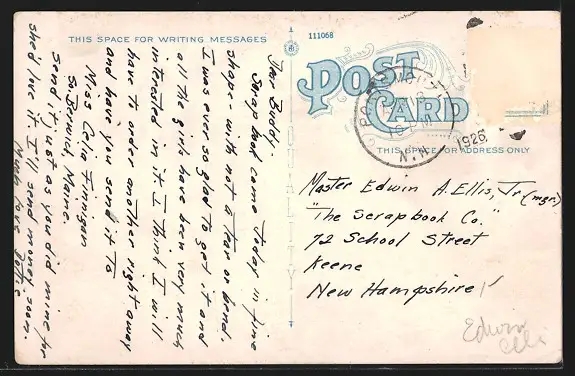 THIS SPACE FOR WRITING MESSAGES
111068
POST CARD
THIS SPACE FOR ADDRESS ONLY
1926
N.H.
Dear Buddy:
Scrap book came today in fine
shape - with not a tear or bend.
I was ever so glad to get it and
all the girls have been very much
interested in it I think I will
have to order another right away
and have you send it to
Miss Celia Finnigan
So. Berwick, Maine.
Send it just as you did mine for
she'd love it I'll send money soon.
Much love Dottie
Master Edwin A. Ellis, Jr (mgr.)
"The Scrapbook Co."
72 School Street
Keene
New Hampshire
Edwin
Ellis